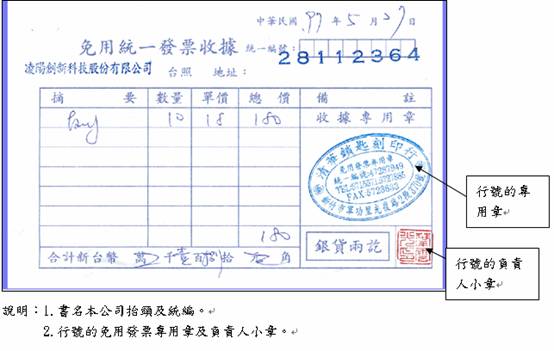 中華民國 97 年 5 月 27 日
免用統一發票收據
統一編號:
28112364
凌陽創新科技股份有限公司 台照 地址:
摘 要 數量 單價 總價 備 註
10 18 180 收據專用章
清華鎖匙刻印行
免用發票專用章
統一編號:47287949
180
銀貨兩訖
合計新台幣 萬 千壹百捌拾 元 角
行號的專用章
行號的負責人小章
說明:1.書名本公司抬頭及統編。
2.行號的免用發票專用章及負責人小章。